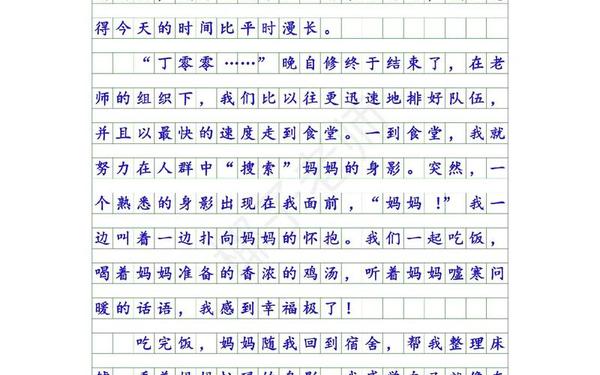 得今天的时间比平时漫长。
“丁零零……”晚自修终于结束了，在老
师的组织下，我们比以往更迅速地排好队伍，
并且以最快的速度走到食堂。一到食堂，我就
努力在人群中“搜索”妈妈的身影。突然，一
个熟悉的身影出现在我面前，“妈妈！”我一
边叫着一边扑向妈妈的怀抱。我们一起吃饭，
喝着妈妈准备的香浓的鸡汤，听着妈妈嘘寒问
暖的话语，我感到幸福极了！
吃完饭，妈妈随我回到宿舍，帮我整理床